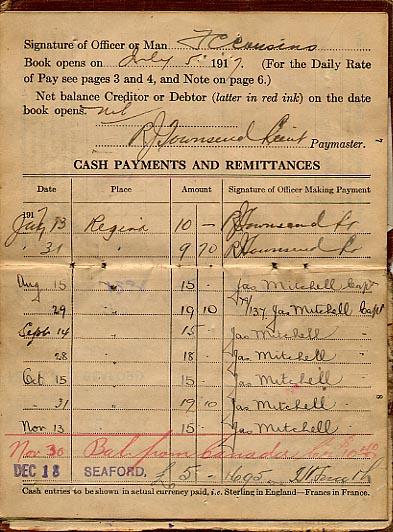 Signature of Officer or Man F Cousins
Book opens on July 5 1917. (For the Daily Rate
of Pay see pages 3 and 4, and Note on page 6.)
Net balance Creditor or Debtor (latter in red ink) on the date
book opens. nil
R Townsend Paymaster.
7
CASH PAYMENTS AND REMITTANCES
Date Place Amount Signature of Officer Making Payment
1917
July 13 Regina 10 — R Townsend
" 31 " 9 70 R Townsend
Aug 15 " 15 - Jas Mitchell Capt
79/137
29 " 19 10 Jas Mitchell Capt
Sept 14 " 15 - Jas Mitchell
28 " 18 - Jas Mitchell
Oct 15 " 15 - Jas Mitchell
8
" 31 " 19 10 Jas Mitchell
Nov 13 " 15 - Jas Mitchell
Nov 30 Bal. from Canada
DEC 18 SEAFORD. £5 - 1695
Cash entries to be shown in actual currency paid, i.e. Sterling in England—Francs in France.